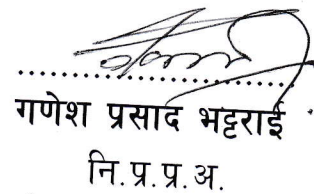 गणेश प्रसाद भट्टराई
नि.प्र.प्र.अ.